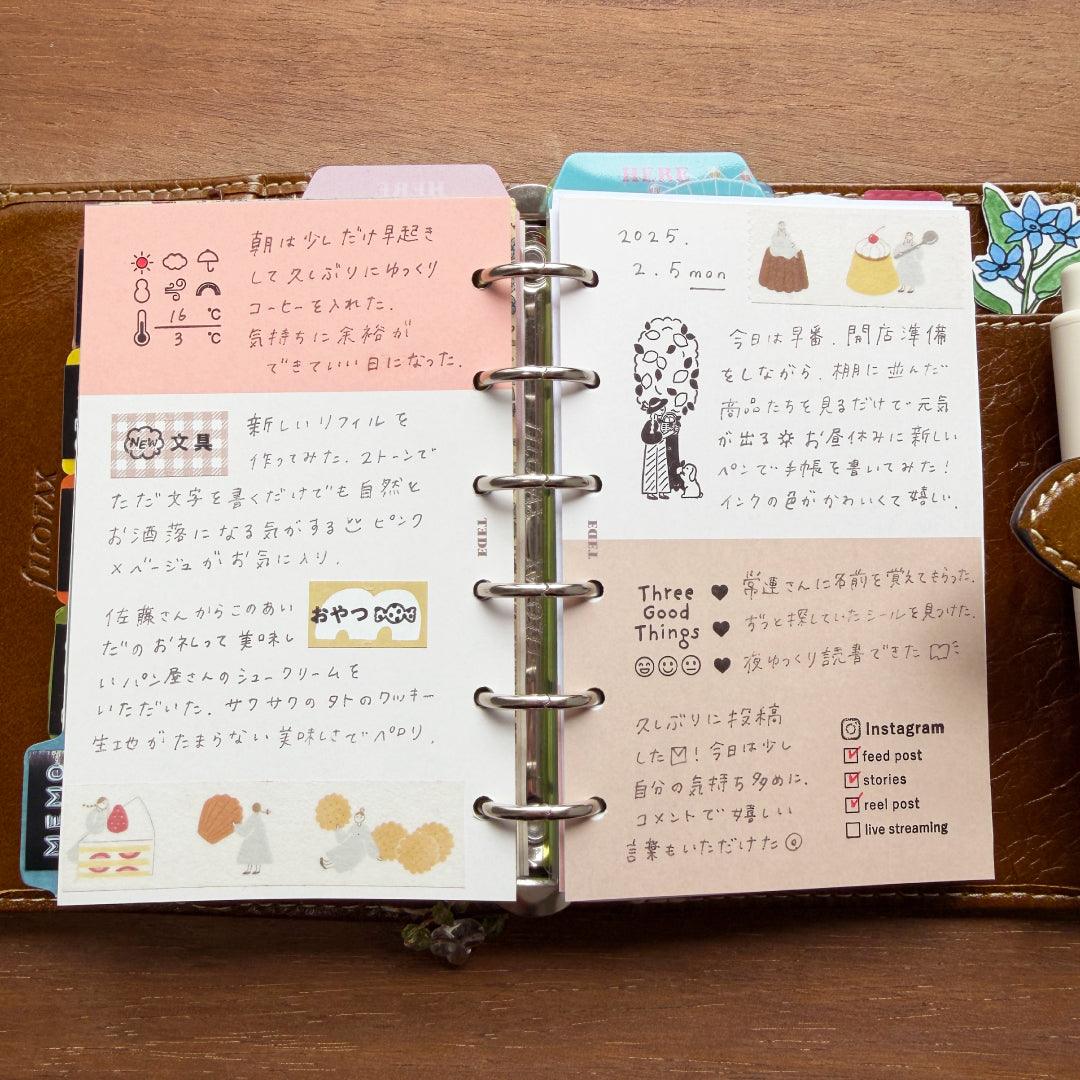 HERE
朝は少しだけ早起き
して久しぶりにゆっくり
コーヒーを入れた.
気持ちに余裕が
できていい日になった.
16 ℃
3 ℃
NEW 文具
新しいリフィルを
作ってみた. 2トーンで
ただ文字を書くだけでも自然と
お洒落になる気がする ピンク
×ベージュがお気に入り.
おやつ
佐藤さんからこのあい
だのお礼って美味し
いパン屋さんのシュークリームを
いただいた. サクサクのタトのクッキー
生地がたまらない美味しさでペロリ.
MEMO
filofax
EDET
HERE
2025.
2.5 mon
今日は早番. 開店準備
をしながら. 棚に並んだ
商品たちを見るだけで元気
が出る お昼休みに新しい
ペンで手帳を書いてみた!
インクの色がかわいくて嬉しい.
Three
Good
Things
常連さんに名前を覚えてもらった.
ずっと探していたシールを見つけた.
夜ゆっくり読書できた
久しぶりに投稿
した! 今日は少し
自分の気持ち多めに.
コメントで嬉しい
言葉もいただけた
Instagram
feed post
stories
reel post
live streaming